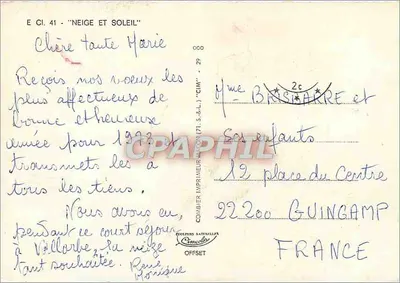 E Cl. 41 - "NEIGE ET SOLEIL"
Chère tante Marie
Reçois nos voeux les
plus affectueux de
bonne et heureuse
année pour 1973 et
transmets les à
tous les tiens.
Nous avons eu,
pendant ce court séjour
à Villarbe, la neige
tant souhaitée. René
Monique
COMBIER IMPRIMEUR (71. S.-&-L.) "CIM" - 29
Mme BRISIARRE et
ses enfants
12 place du Centre
22200 GUINGAMP
FRANCE
COULEURS NATURELLES
OFFSET
CPAPHIL